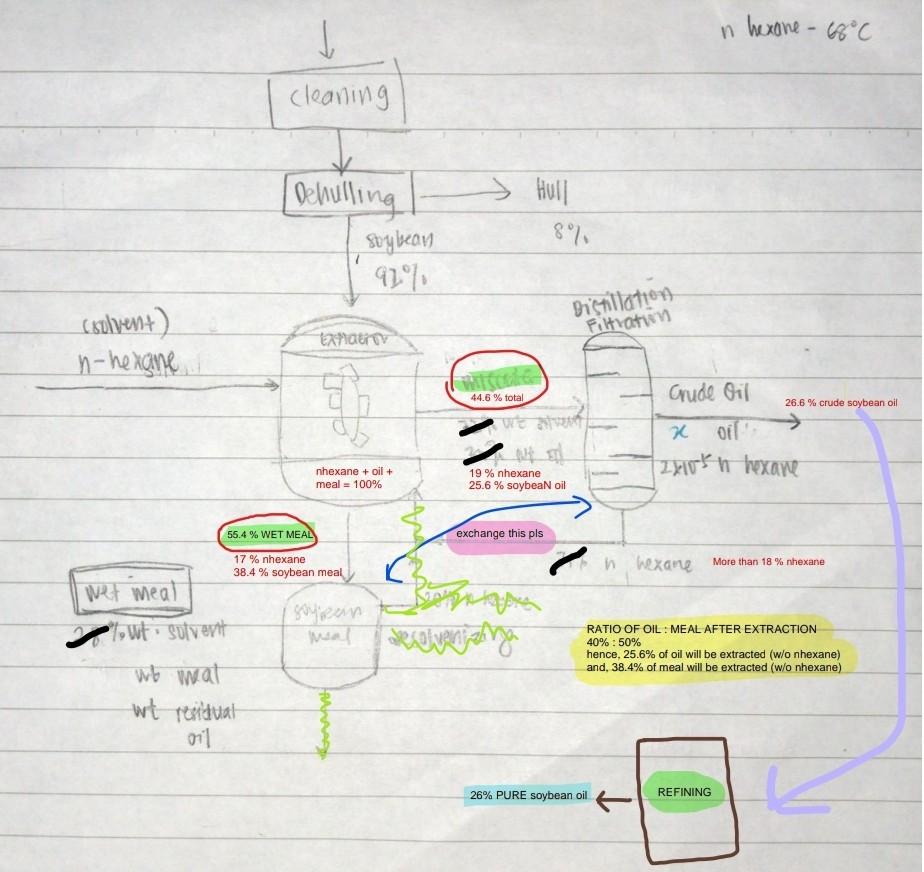 n hexane - 68°C
Cleaning
Dehulling
Hull
8%
soybean
92%
(solvent)
n-hexane
Extractor
Distillation
Filtration
44.6 % total
wt solvent
wt oil
19 % nhexane
25.6 % soybeaN oil
nhexane + oil +
meal = 100%
Crude Oil
x oil
2x10⁻⁵ n hexane
26.6 % crude soybean oil
55.4 % WET MEAL
17 % nhexane
38.4 % soybean meal
exchange this pls
% n hexane
More than 18 % nhexane
wet meal
% wt. solvent
wt meal
wt residual
oil
soybean
meal
RATIO OF OIL : MEAL AFTER EXTRACTION
40% : 50%
hence, 25.6% of oil will be extracted (w/o nhexane)
and, 38.4% of meal will be extracted (w/o nhexane)
26% PURE soybean oil
REFINING